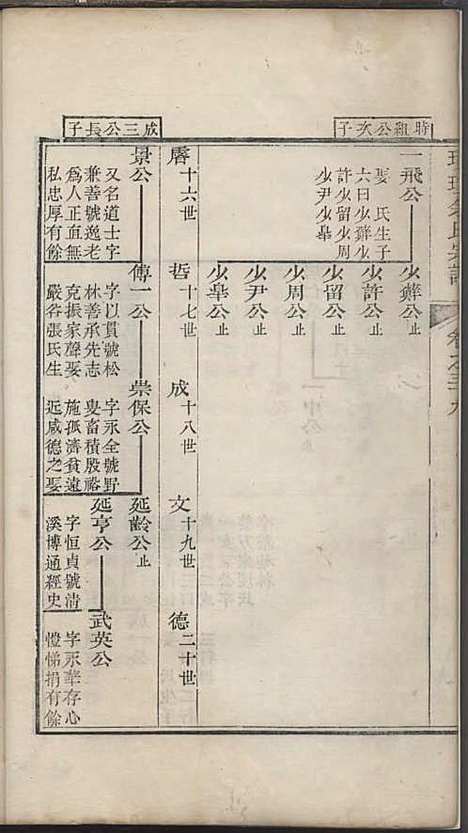 時組公次子
一飛公
娶 氏生子
六曰少輝少
許少留少周
少尹少皋
少輝公止
少許公止
少留公止
少周公止
少尹公止
少皋公止
十六世
哲 十七世
成 十八世
文 十九世
德 二十世
成三公長子
景公
又名道士字
兼善號逸老
為人正直無
私忠厚有餘
傳一公
字以貫號松
林善承先志
克振家聲娶
嚴谷張氏生
崇保公
字永全號野
叟畜積殷裕
施孤濟貧遠
近咸德之娶
延齡公止
延亨公
字恒貞號清
溪博通經史
武英公
字永華存心
愷悌捐有餘